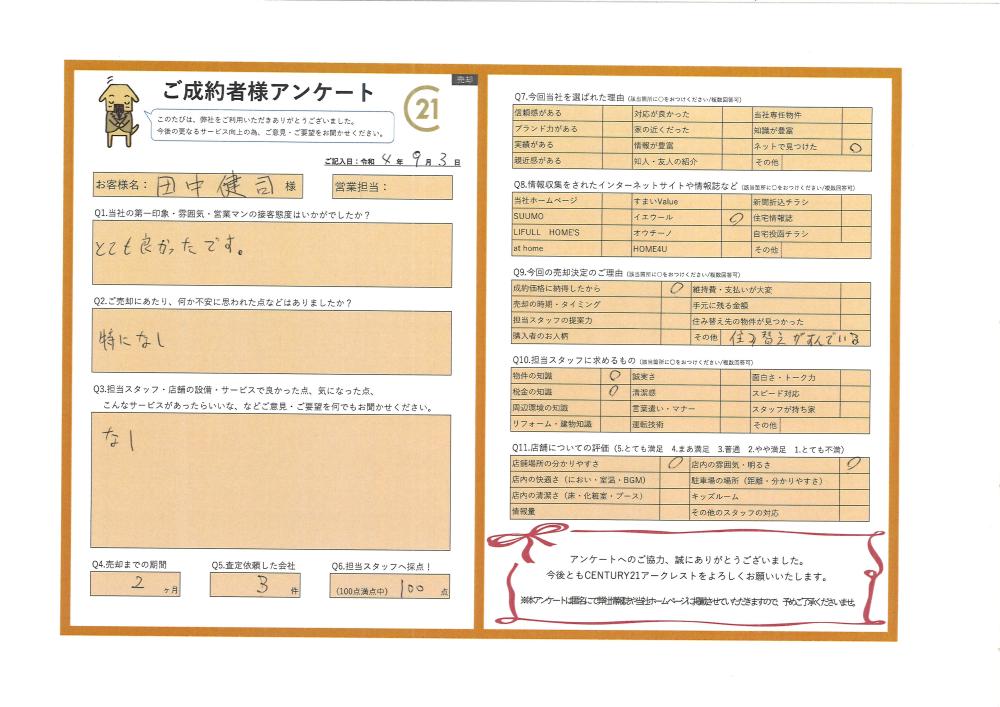 売却
ご成約者様アンケート
21
このたびは、弊社をご利用いただきありがとうございました。
今後の更なるサービス向上の為、ご意見・ご要望をお聞かせください。
ご記入日：令和 4 年 9 月 3 日
お客様名： 田中健司 様
営業担当：
Q1.当社の第一印象・雰囲気・営業マンの接客態度はいかがでしたか？
とても良かったです。
Q2.ご売却にあたり、何か不安に思われた点などはありましたか？
特になし
Q3.担当スタッフ・店舗の設備・サービスで良かった点、気になった点、
こんなサービスがあったらいいな、などご意見・ご要望を何でもお聞かせください。
なし
Q4.売却までの期間
2 ヶ月
Q5.査定依頼した会社
3 件
Q6.担当スタッフへ採点！
(100点満点中) 100 点
Q7.今回当社を選ばれた理由（該当箇所に○をおつけください/複数回答可）
信頼感がある 対応が良かった 当社専任物件
ブランド力がある 家の近くだった 知識が豊富
実績がある 情報が豊富 ネットで見つけた ○
親近感がある 知人・友人の紹介 その他
Q8.情報収集をされたインターネットサイトや情報誌など（該当箇所に○をおつけください/複数回答可）
当社ホームページ すまいValue 新聞折込チラシ
SUUMO イエウール ○ 住宅情報誌
LIFULL HOME'S オウチーノ 自宅投函チラシ
at home HOME4U その他
Q9.今回の売却決定のご理由（該当箇所に○をおつけください/複数回答可）
成約価格に納得したから ○ 維持費・支払いが大変
売却の時期・タイミング 手元に残る金額
担当スタッフの提案力 住み替え先の物件が見つかった
購入者のお人柄 その他 住み替えがすんでいる
Q10.担当スタッフに求めるもの（該当箇所に○をおつけください/複数回答可）
物件の知識 ○ 誠実さ 面白さ・トーク力
税金の知識 ○ 清潔感 スピード対応
周辺環境の知識 言葉遣い・マナー スタッフが持ち家
リフォーム・建物知識 運転技術 その他
Q11.店舗についての評価（5.とても満足 4.まあ満足 3.普通 2.やや満足 1.とても不満）
店舗場所の分かりやすさ ○ 店内の雰囲気・明るさ ○
店内の快適さ（におい・室温・BGM） 駐車場の場所（距離・分かりやすさ）
店内の清潔さ（床・化粧室・ブース） キッズルーム
情報量 その他のスタッフの対応
アンケートへのご協力、誠にありがとうございました。
今後ともCENTURY21アークレストをよろしくお願いいたします。
※本アンケートは匿名にて弊社情報誌や当社ホームページに掲載させていただきますので、予めご了承くださいませ。